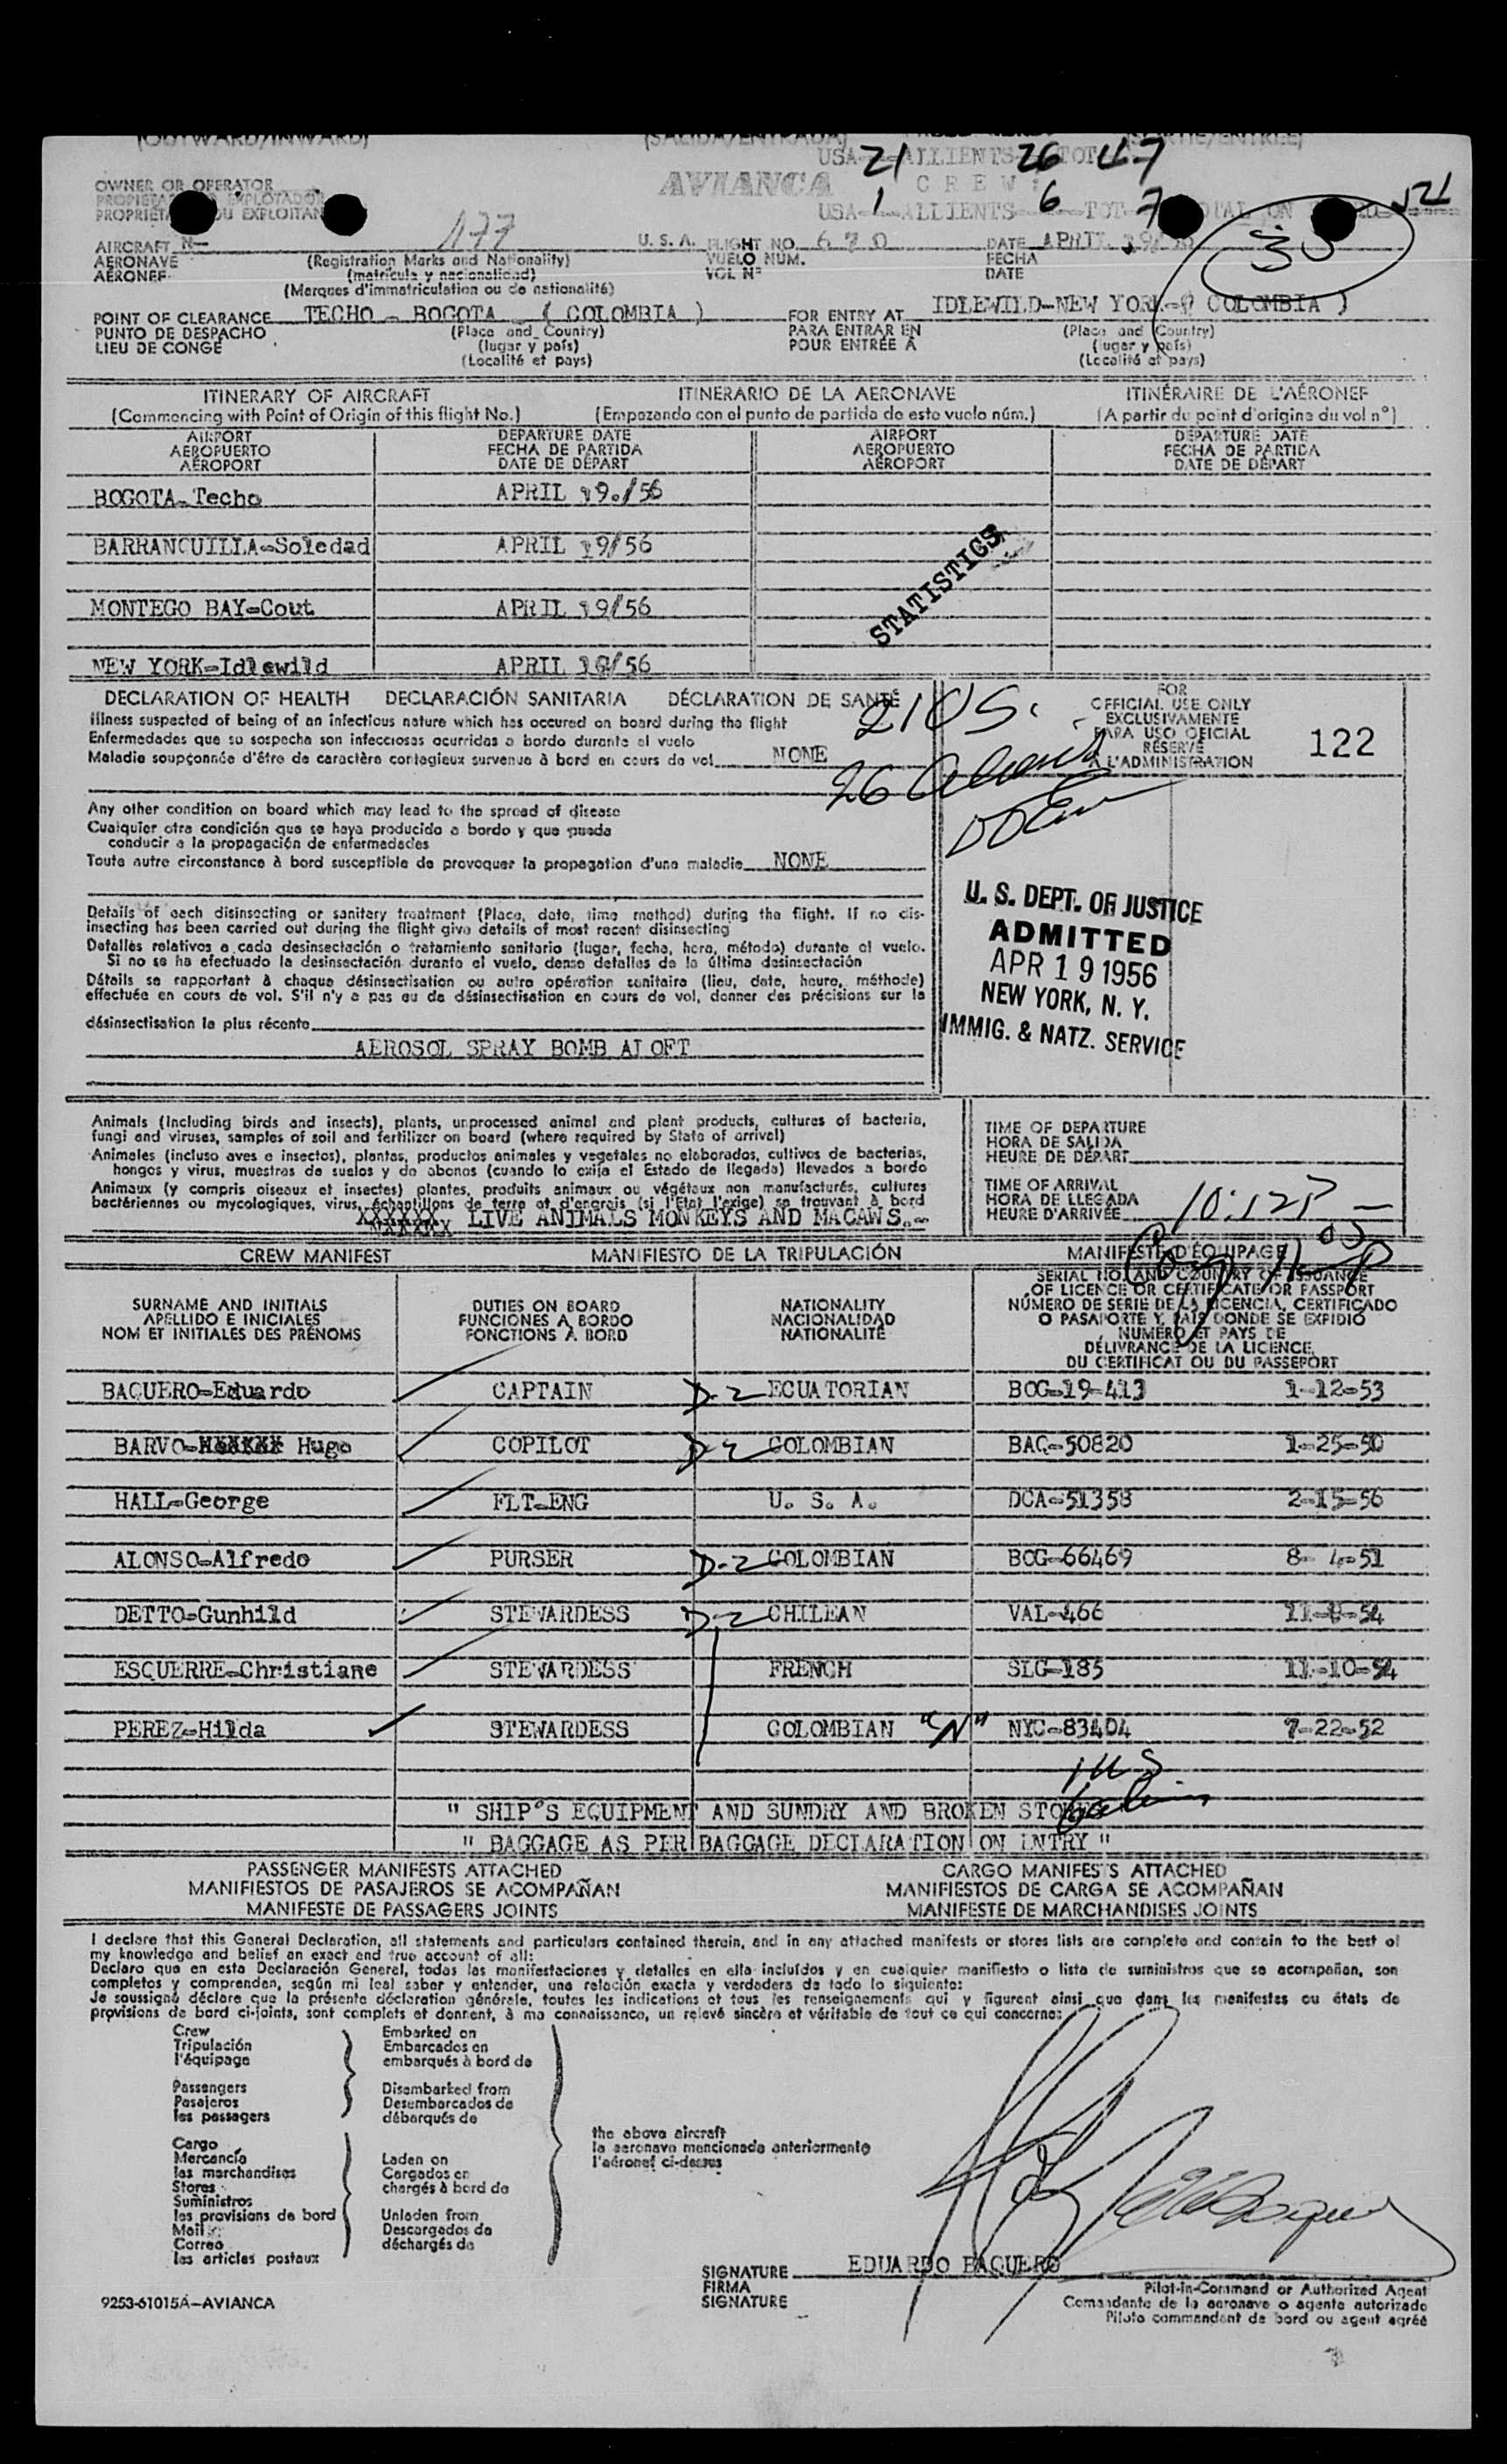 (OUTWARD/INWARD)
USA 21 ALLIENTS 26 TOT 47
OWNER OR OPERATOR
AVIANCA CREW:
USA 1 ALLIENTS 6 TOT 7
AIRCRAFT N- 177 U. S. A. FLIGHT NO. 670 DATE APRIL 19/56
AERONAVE (Registration Marks and Nationality) VUELO NUM. FECHA
AÉRONEF (matrícula y nacionalidad) VOL Nº DATE
(Marques d'immatriculation ou de nationalité)
POINT OF CLEARANCE TECHO - BOGOTA ( COLOMBIA ) FOR ENTRY AT IDLEWILD-NEW YORK-( COLOMBIA )
PUNTO DE DESPACHO (Place and Country) PARA ENTRAR EN (Place and Country)
LIEU DE CONGÉ (lugar y país) POUR ENTRÉE À (lugar y país)
(Localité et pays) (Localité et pays)
ITINERARY OF AIRCRAFT ITINERARIO DE LA AERONAVE ITINÉRAIRE DE L'AÉRONEF
(Commencing with Point of Origin of this flight No.) (Empezando con el punto de partida de este vuelo núm.) (A partir du point d'origine du vol nº)
AIRPORT DEPARTURE DATE AIRPORT DEPARTURE DATE
AEROPUERTO FECHA DE PARTIDA AEROPUERTO FECHA DE PARTIDA
AÉROPORT DATE DE DÉPART AÉROPORT DATE DE DÉPART
BOGOTA-Techo APRIL 19./56
BARRANQUILLA-Soledad APRIL 19/56
STATISTICS
MONTEGO BAY-Cout APRIL 19/56
NEW YORK-Idlewild APRIL 19/56
DECLARATION OF HEALTH DECLARACIÓN SANITARIA DÉCLARATION DE SANTÉ
21 US.
FOR
OFFICIAL USE ONLY
EXCLUSIVAMENTE
PARA USO OFICIAL
RÉSERVÉ
À L'ADMINISTRATION
122
Illness suspected of being of an infectious nature which has occured on board during the flight
Enfermedades que se sospecha son infecciosas ocurridas a bordo durante el vuelo
Maladie soupçonnée d'être de caractère contagieux survenue à bord en cours de vol NONE
26 Aliens
Any other condition on board which may lead to the spread of disease
Cualquier otra condición que se haya producido a bordo y que pueda
conducir a la propagación de enfermedades
Toute autre circonstance à bord susceptible de provoquer la propagation d'une maladie NONE
Details of each disinsecting or sanitary treatment (Place, date, time method) during the flight. If no dis-
insecting has been carried out during the flight give details of most recent disinsecting
Detalles relativos a cada desinsectación o tratamiento sanitario (lugar, fecha, hora, método) durante el vuelo.
Si no se ha efectuado la desinsectación durante el vuelo, dense detalles de la última desinsectación
Détails se rapportant à chaque désinsectisation ou autre opération sanitaire (lieu, date, heure, méthode)
effectuée en cours de vol. S'il n'y a pas eu de désinsectisation en cours de vol, donner des précisions sur la
désinsectisation la plus récente
AEROSOL SPRAY BOMB ALOFT
U. S. DEPT. OF JUSTICE
ADMITTED
APR 19 1956
NEW YORK, N. Y.
IMMIG. & NATZ. SERVICE
Animals (Including birds and insects), plants, unprocessed animal and plant products, cultures of bacteria,
fungi and viruses, samples of soil and fertilizer on board (where required by State of arrival)
Animales (incluso aves e insectos), plantas, productos animales y vegetales no elaborados, cultivos de bacterias,
hongos y virus, muestras de suelos y de abonos (cuando lo exija el Estado de llegada) llevados a bordo
Animaux (y compris oiseaux et insectes) plantes, produits animaux ou végétaux non manufacturés, cultures
bactériennes ou mycologiques, virus, échantillons de terre et d'engrais (si l'Etat l'exige) se trouvant à bord
LIVE ANIMALS MONKEYS AND MACAWS.-
TIME OF DEPARTURE
HORA DE SALIDA
HEURE DE DÉPART
TIME OF ARRIVAL
HORA DE LLEGADA
HEURE D'ARRIVÉE 10:12P
CREW MANIFEST MANIFIESTO DE LA TRIPULACIÓN MANIFESTE D'ÉQUIPAGE
SURNAME AND INITIALS DUTIES ON BOARD NATIONALITY
APELLIDO E INICIALES FUNCIONES A BORDO NACIONALIDAD
NOM ET INITIALES DES PRÉNOMS FONCTIONS À BORD NATIONALITÉ
SERIAL NO. AND COUNTRY OF ISSUANCE
OF LICENCE OR CERTIFICATE OR PASSPORT
NÚMERO DE SERIE DE LA LICENCIA, CERTIFICADO
O PASAPORTE Y PAÍS DONDE SE EXPIDIÓ
NUMÉRO ET PAYS DE
DÉLIVRANCE DE LA LICENCE,
DU CERTIFICAT OU DU PASSEPORT
BAQUERO-Eduardo CAPTAIN D-2 ECUATORIAN BOG-19-413 1-12-53
BARVO- Hugo COPILOT D-2 COLOMBIAN BAQ-50820 1-25-50
HALL-George FLT-ENG U. S. A. DCA-51358 2-15-56
ALONSO-Alfredo PURSER D-2 COLOMBIAN BOG-66469 8- 4-51
DETTO-Gunhild STEWARDESS D-2 CHILEAN VAL-466 11-8-54
ESQUERRE-Christiane STEWARDESS FRENCH SLG-185 11-10-54
PEREZ-Hilda STEWARDESS COLOMBIAN "N" NYC-83404 7-22-52
1 US
6 alien
" SHIP'S EQUIPMENT AND SUNDRY AND BROKEN STORES
" BAGGAGE AS PER BAGGAGE DECLARATION ON ENTRY "
PASSENGER MANIFESTS ATTACHED CARGO MANIFESTS ATTACHED
MANIFIESTOS DE PASAJEROS SE ACOMPAÑAN MANIFIESTOS DE CARGA SE ACOMPAÑAN
MANIFESTE DE PASSAGERS JOINTS MANIFESTE DE MARCHANDISES JOINTS
I declare that this General Declaration, all statements and particulars contained therein, and in any attached manifests or stores lists are complete and contain to the best of
my knowledge and belief an exact and true account of all:
Declaro que en esta Declaración General, todas las manifestaciones y detalles en ella incluídos y en cualquier manifiesto o lista de suministros que se acompañan, son
completos y comprenden, según mi leal saber y entender, una relación exacta y verdadera de todo lo siguiente:
Je soussigné déclare que la présente déclaration générale, toutes les indications et tous les renseignements qui y figurent ainsi que dans les manifestes ou états de
provisions de bord ci-joints, sont complets et donnent, à ma connaissance, un relevé sincère et véritable de tout ce qui concerne:
Crew Embarked on
Tripulación Embarcados en
l'équipage embarqués à bord de
Passengers Disembarked from
Pasajeros Desembarcados de
les passagers débarqués de
the above aircraft
la aeronave mencionada anteriormente
l'aéronef ci-dessus
Cargo
Mercancía Laden on
les marchandises Cargados en
Stores chargés à bord de
Suministros
les provisions de bord Unladen from
Mail Descargados de
Correo déchargés de
les articles postaux
SIGNATURE EDUARDO BAQUERO
FIRMA
SIGNATURE
Pilot-in-Command or Authorized Agent
Comandante de la aeronave o agente autorizado
Pilote commandant de bord ou agent agréé
9253-61015A-AVIANCA